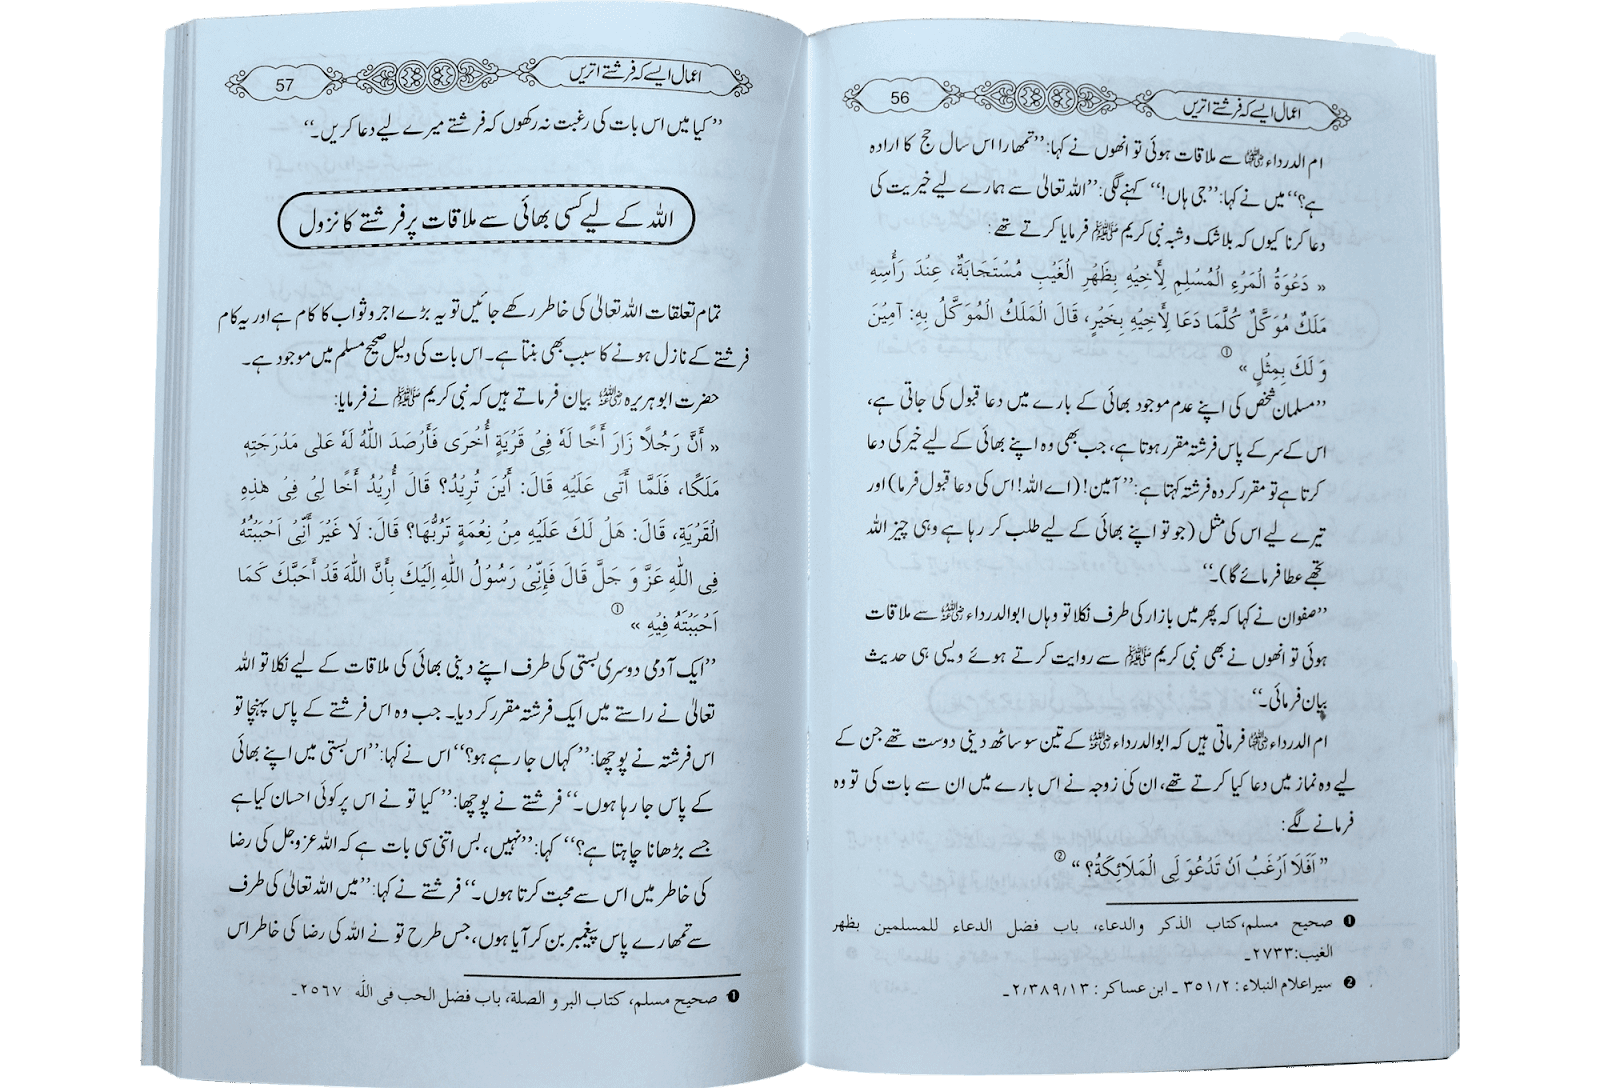 56
اعمال ایسے کہ فرشتے اتریں
ام الدرداء رضی اللہ عنہا سے ملاقات ہوئی تو انھوں نے کہا: ’’تمھارا اس سال حج کا ارادہ
ہے؟‘‘ میں نے کہا: ’’جی ہاں!‘‘ کہنے لگی: ’’اللہ تعالیٰ سے ہمارے لیے خیریت کی
دعا کرنا کیوں کہ بلاشک و شبہ نبی کریم ﷺ فرمایا کرتے تھے:
« دَعْوَةُ الْمَرْءِ الْمُسْلِمِ لِأَخِيْهِ بِظَهْرِ الْغَيْبِ مُسْتَجَابَةٌ، عِنْدَ رَأْسِهِ
مَلَكٌ مُوَكَّلٌ كُلَّمَا دَعَا لِأَخِيْهِ بِخَيْرٍ، قَالَ الْمَلَكُ الْمُوَكَّلُ بِهِ: آمِيْنَ
وَ لَكَ بِمِثْلٍ » ①
’’مسلمان شخص کی اپنے عدم موجود بھائی کے بارے میں دعا قبول کی جاتی ہے،
اس کے سر کے پاس فرشتہ مقرر ہوتا ہے، جب بھی وہ اپنے بھائی کے لیے خیر کی دعا
کرتا ہے تو مقرر کردہ فرشتہ کہتا ہے: ’’آمین! (اے اللہ! اس کی دعا قبول فرما) اور
تیرے لیے اس کی مثل (جو تو اپنے بھائی کے لیے طلب کر رہا ہے وہی چیز اللہ
تجھے عطا فرمائے گا)۔‘‘
’’صفوان نے کہا کہ پھر میں بازار کی طرف نکلا تو وہاں ابو الدرداء رضی اللہ عنہ سے ملاقات
ہوئی تو انھوں نے بھی نبی کریم ﷺ سے روایت کرتے ہوئے ویسی ہی حدیث
بیان فرمائی۔‘‘
ام الدرداء رضی اللہ عنہا فرماتی ہیں کہ ابو الدرداء رضی اللہ عنہ کے تین سو ساٹھ دینی دوست تھے جن کے
لیے وہ نماز میں دعا کیا کرتے تھے، ان کی زوجہ نے اس بارے میں ان سے بات کی تو وہ
فرمانے لگے:
’’ اَفَلَا اَرْغَبُ اَنْ تَدْعُوَ لِى الْمَلَائِكَةُ؟ ‘‘ ②
❶ صحيح مسلم، كتاب الذكر والدعاء، باب فضل الدعاء للمسلمين بظهر
الغيب: ٢٧٣٣۔
❷ سير اعلام النبلاء : ٣٥١/٢ ۔ ابن عساكر : ٢/٣٨٩/١٣۔
57
اعمال ایسے کہ فرشتے اتریں
’’کیا میں اس بات کی رغبت نہ رکھوں کہ فرشتے میرے لیے دعا کریں۔‘‘
اللہ کے لیے کسی بھائی سے ملاقات پر فرشتے کا نزول
تمام تعلقات اللہ تعالیٰ کی خاطر رکھے جائیں تو یہ بڑے اجر و ثواب کا کام ہے اور یہ کام
فرشتے کے نازل ہونے کا سبب بھی بنتا ہے۔ اس بات کی دلیل صحیح مسلم میں موجود ہے۔
حضرت ابو ہریرہ رضی اللہ عنہ بیان فرماتے ہیں کہ نبی کریم ﷺ نے فرمایا:
« أَنَّ رَجُلًا زَارَ أَخًا لَهُ فِىْ قَرْيَةٍ أُخْرَى فَأَرْصَدَ اللّٰهُ لَهُ عَلٰى مَدْرَجَتِهٖ
مَلَكًا، فَلَمَّا أَتٰى عَلَيْهِ قَالَ: أَيْنَ تُرِيْدُ؟ قَالَ أُرِيْدُ أَخًا لِىْ فِىْ هٰذِهِ
الْقَرْيَةِ، قَالَ: هَلْ لَكَ عَلَيْهِ مِنْ نِعْمَةٍ تَرُبُّهَا؟ قَالَ: لَا غَيْرَ أَنِّىْ اَحْبَبْتُهُ
فِى اللّٰهِ عَزَّ وَ جَلَّ قَالَ فَإِنِّىْ رَسُوْلُ اللّٰهِ اِلَيْكَ بِأَنَّ اللّٰهَ قَدْ أَحَبَّكَ كَمَا
اَحْبَبْتَهُ فِيْهِ » ①
’’ایک آدمی دوسری بستی کی طرف اپنے دینی بھائی کی ملاقات کے لیے نکلا تو اللہ
تعالیٰ نے راستے میں ایک فرشتہ مقرر کر دیا۔ جب وہ اس فرشتے کے پاس پہنچا تو
اس فرشتہ نے پوچھا: ’’کہاں جا رہے ہو؟‘‘ اس نے کہا: ’’اس بستی میں اپنے بھائی
کے پاس جا رہا ہوں۔‘‘ فرشتے نے پوچھا: ’’کیا تو نے اس پر کوئی احسان کیا ہے
جسے بڑھانا چاہتا ہے؟‘‘ کہا: ’’نہیں، بس اتنی سی بات ہے کہ اللہ عزوجل کی رضا
کی خاطر میں اس سے محبت کرتا ہوں۔‘‘ فرشتے نے کہا: ’’میں اللہ تعالیٰ کی طرف
سے تمھارے پاس پیغمبر بن کر آیا ہوں، جس طرح تو نے اللہ کی رضا کی خاطر اس
❶ صحيح مسلم، كتاب البر و الصلة، باب فضل الحب فى الله ٢٥٦٧۔